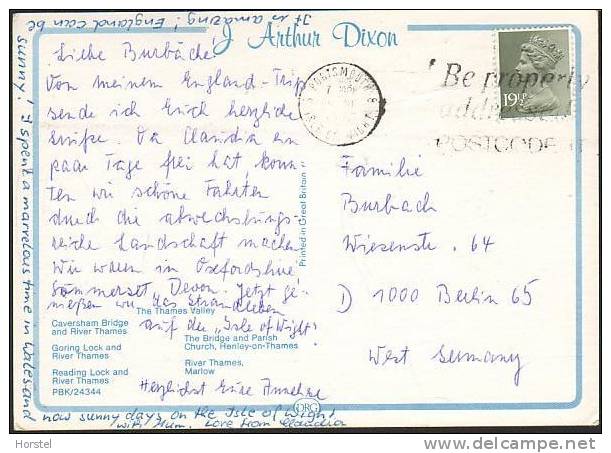 It is amazing! England can be
sunny! I spent a marvelous time in Wales and
now sunny days on the Isle of Wight
with Mum. Love from Claudia
J Arthur Dixon
Liebe Burbächе!
Von meinem England-Trip
sende ich Euch herzliche
Grüße. Da Claudia ein
paar Tage frei hat, konn-
ten wir schöne Fahrten
durch die abwechslungs-
reiche Landschaft machen
Wir waren in Oxfordshire
Sommerset, Devon. Jetzt ge-
nießen wir das Strandleben
auf der „Isle of Wight"
Herzlichst Eure Annelise
The Thames Valley
Caversham Bridge
and River Thames
Goring Lock and
River Thames
Reading Lock and
River Thames
PBK/24344
The Bridge and Parish
Church, Henley-on-Thames
River Thames,
Marlow
Printed in Great Britain
ORG
PORTSMOUTH &
ISLE OF WIGHT
Be properly
addressed
POSTCODE IT
19½P
Familie
Burbach
Wiesenstr. 64
D) 1000 Berlin 65
West Germany
Horstel
www.delcampe.net